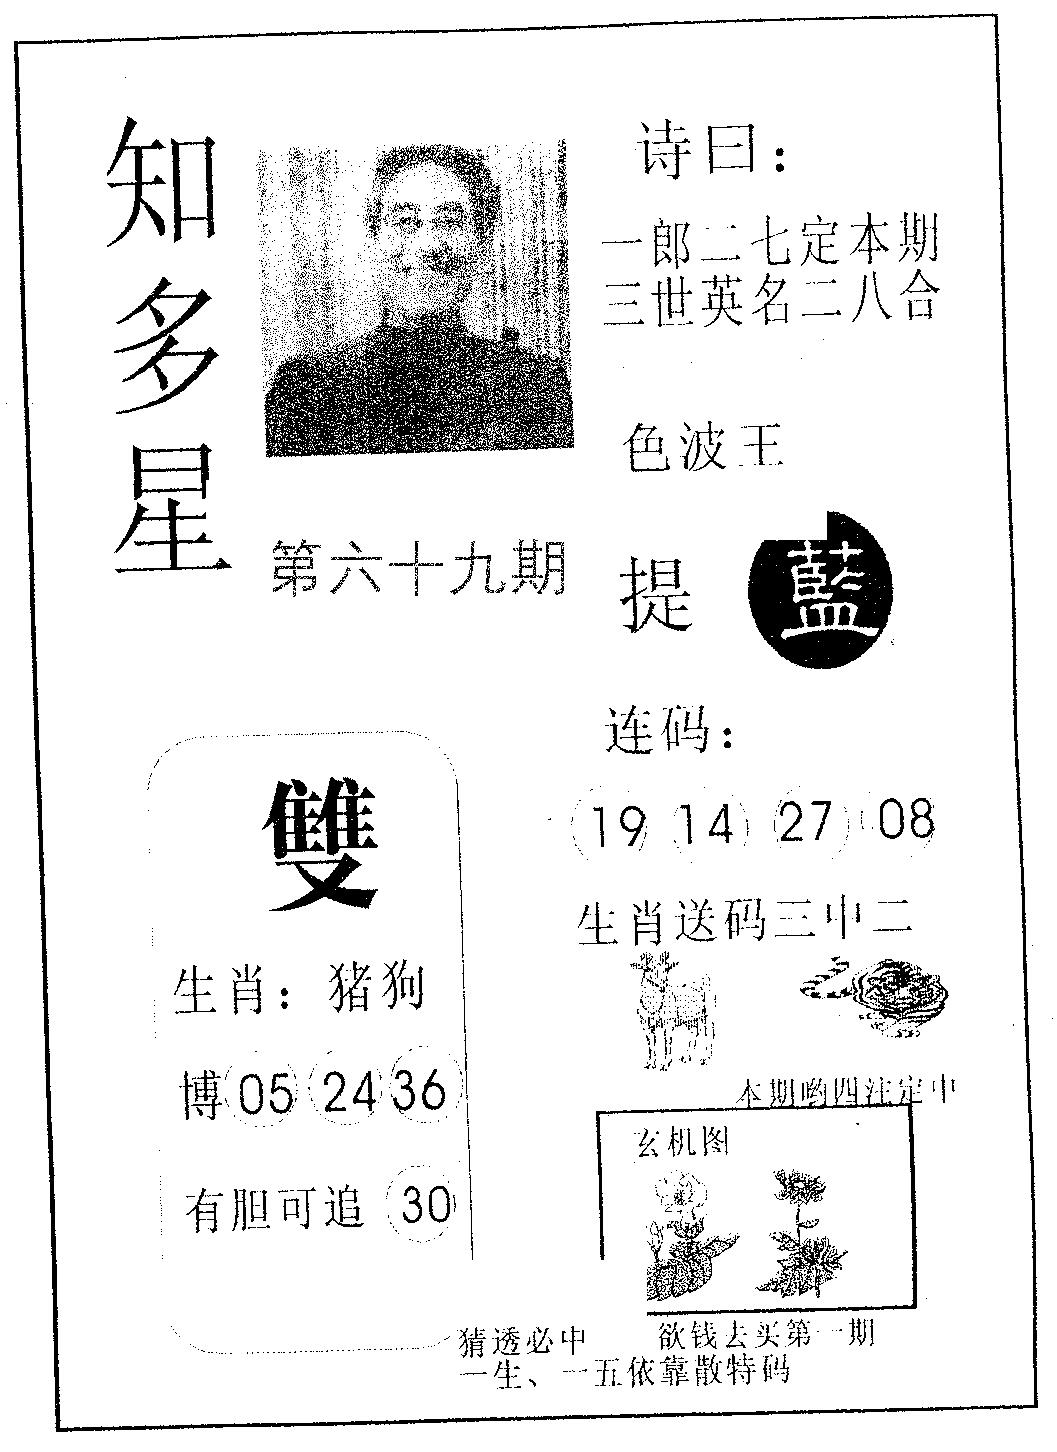 知多星
诗曰：
一郎二七定本期
三世英名二八合
色波王
第六十九期
提 藍
连码：
19 14 27 08
雙
生肖送码三中二
生肖：猪狗
博 05 24 36
本期哟四注定中
玄机图
有胆可追 30
猜透必中
欲钱去买第一期
一生、一五依靠散特码